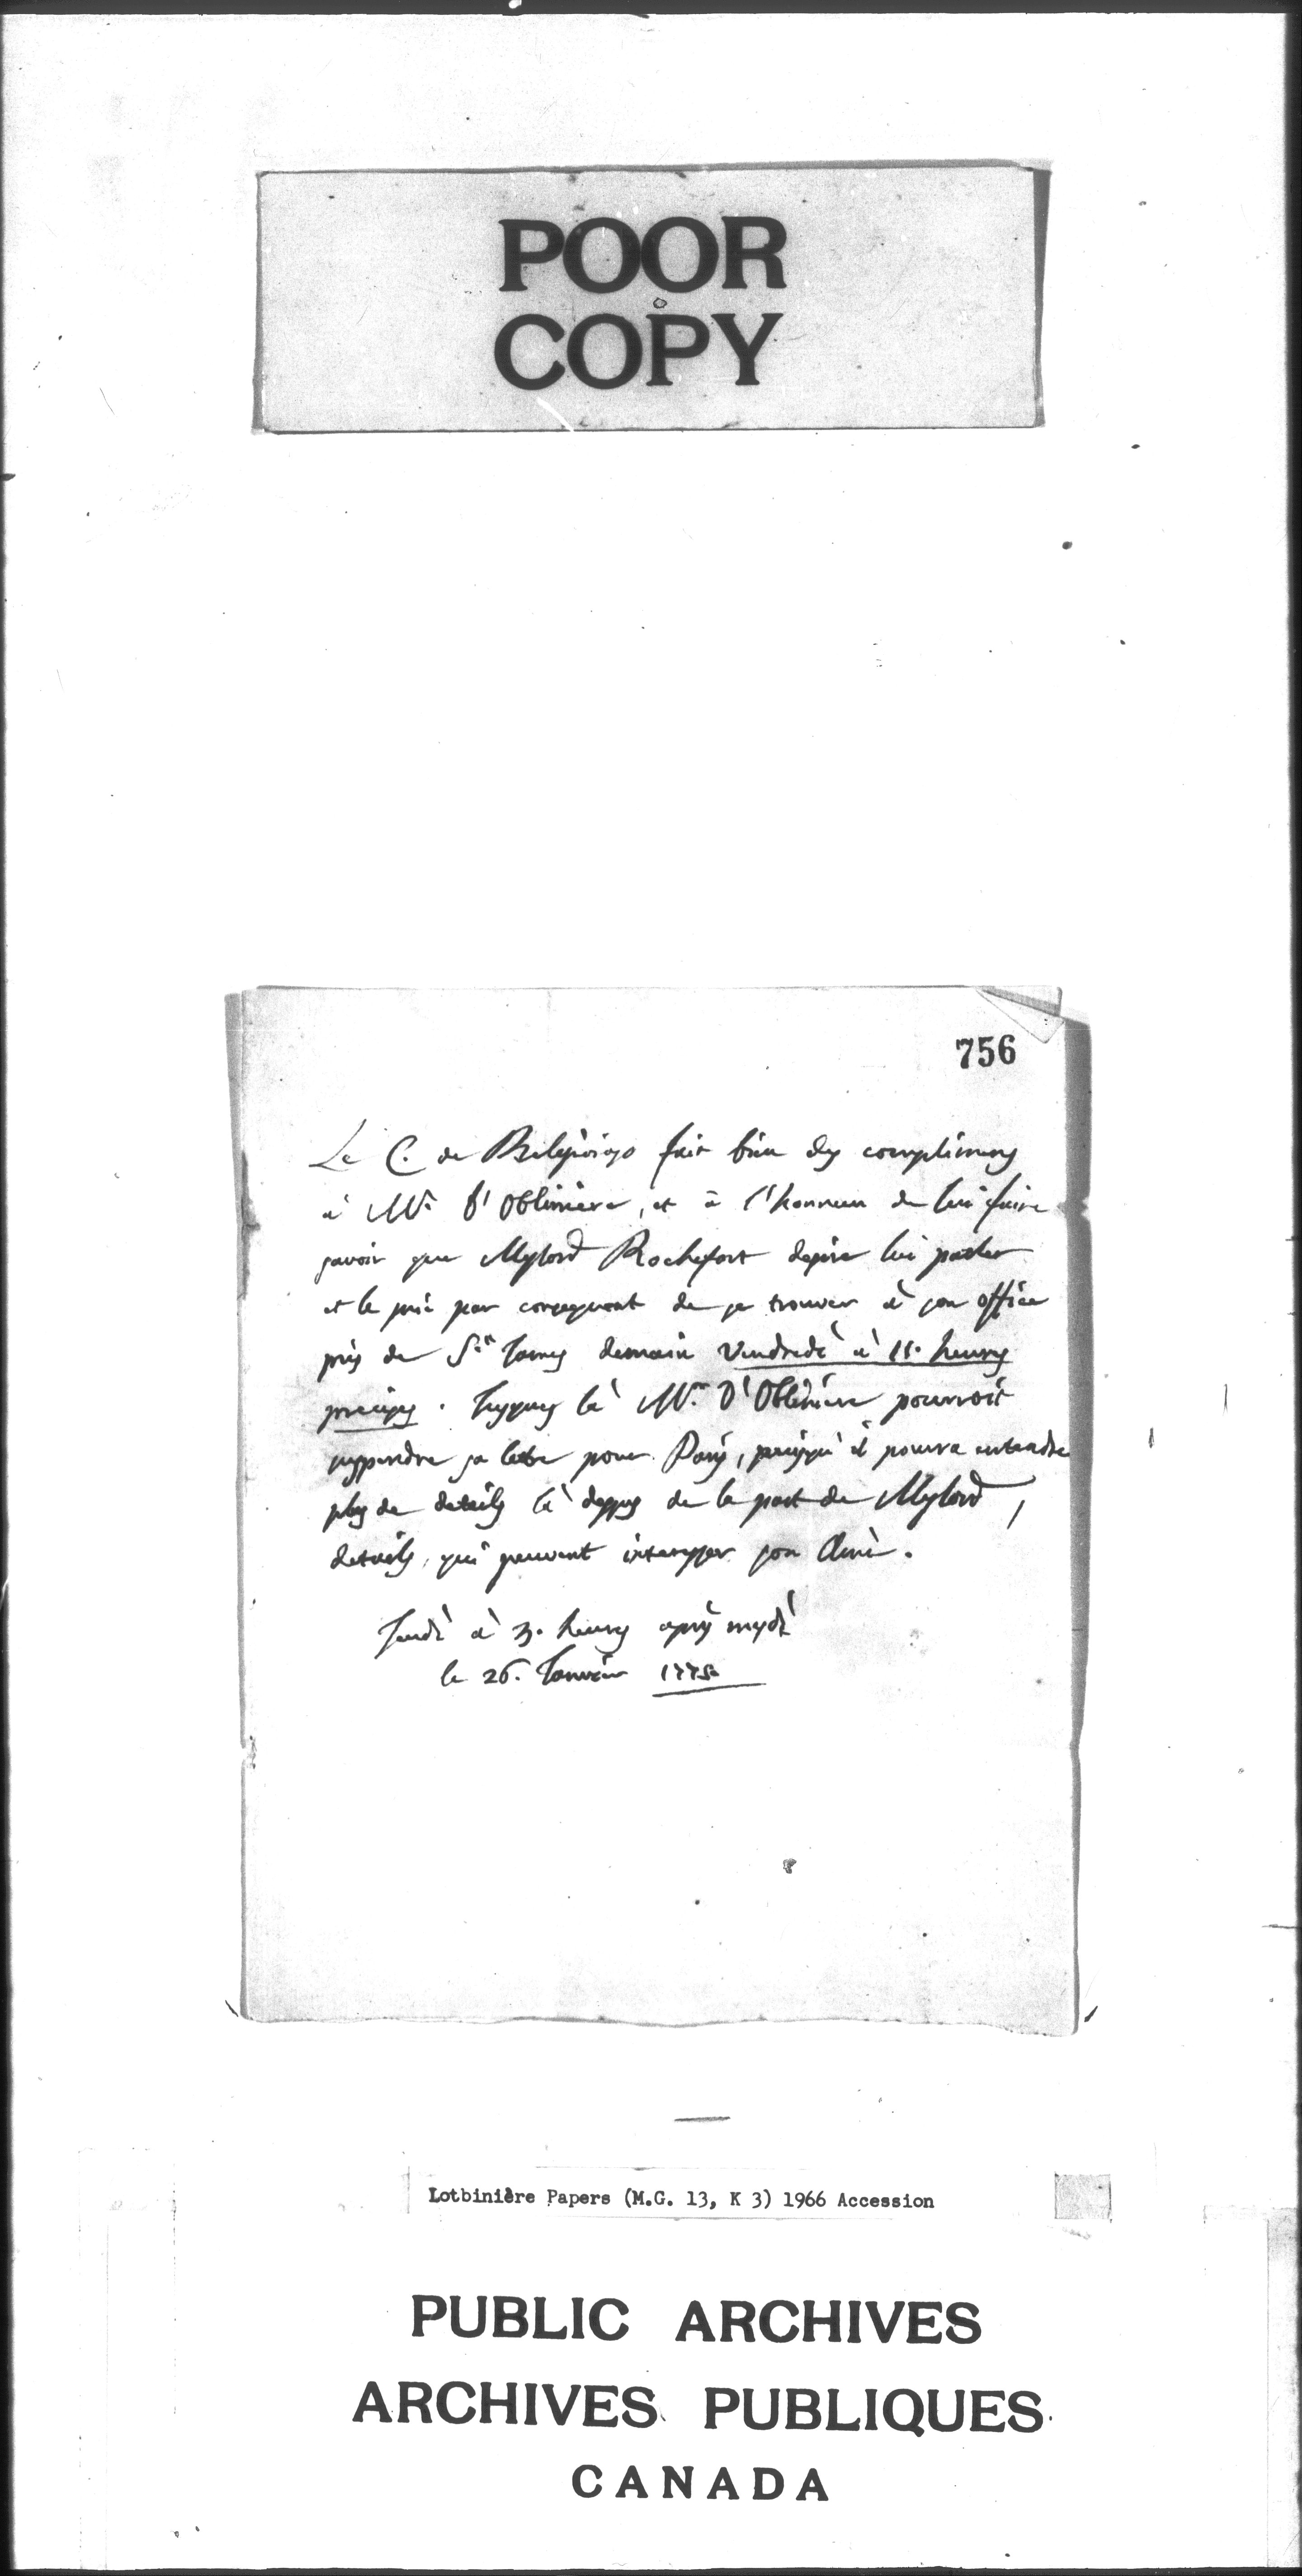 POOR
COPY
756
Le C. de Belgioioso fait bien des complimens
à Mr. D'Obliniere, et à l'honneur de lui faire
savoir que Mylord Rochefort desire lui parler
et le prie par consequent de se trouver à son office
près de St. James demain Vendredi à 11. heures
precises. Jusques là Mr. D'Obliniere pourroit
suspendre sa lettre pour Paris, puisqu'il pourra entendre
plus de details là dessus de la part de Mylord,
details, qui peuvent interesser son Ami.
Jeudi à 3. heures après mydi
le 26. Janvier 1775.
Lotbinière Papers (M.G. 13, K 3) 1966 Accession
PUBLIC ARCHIVES
ARCHIVES PUBLIQUES
CANADA